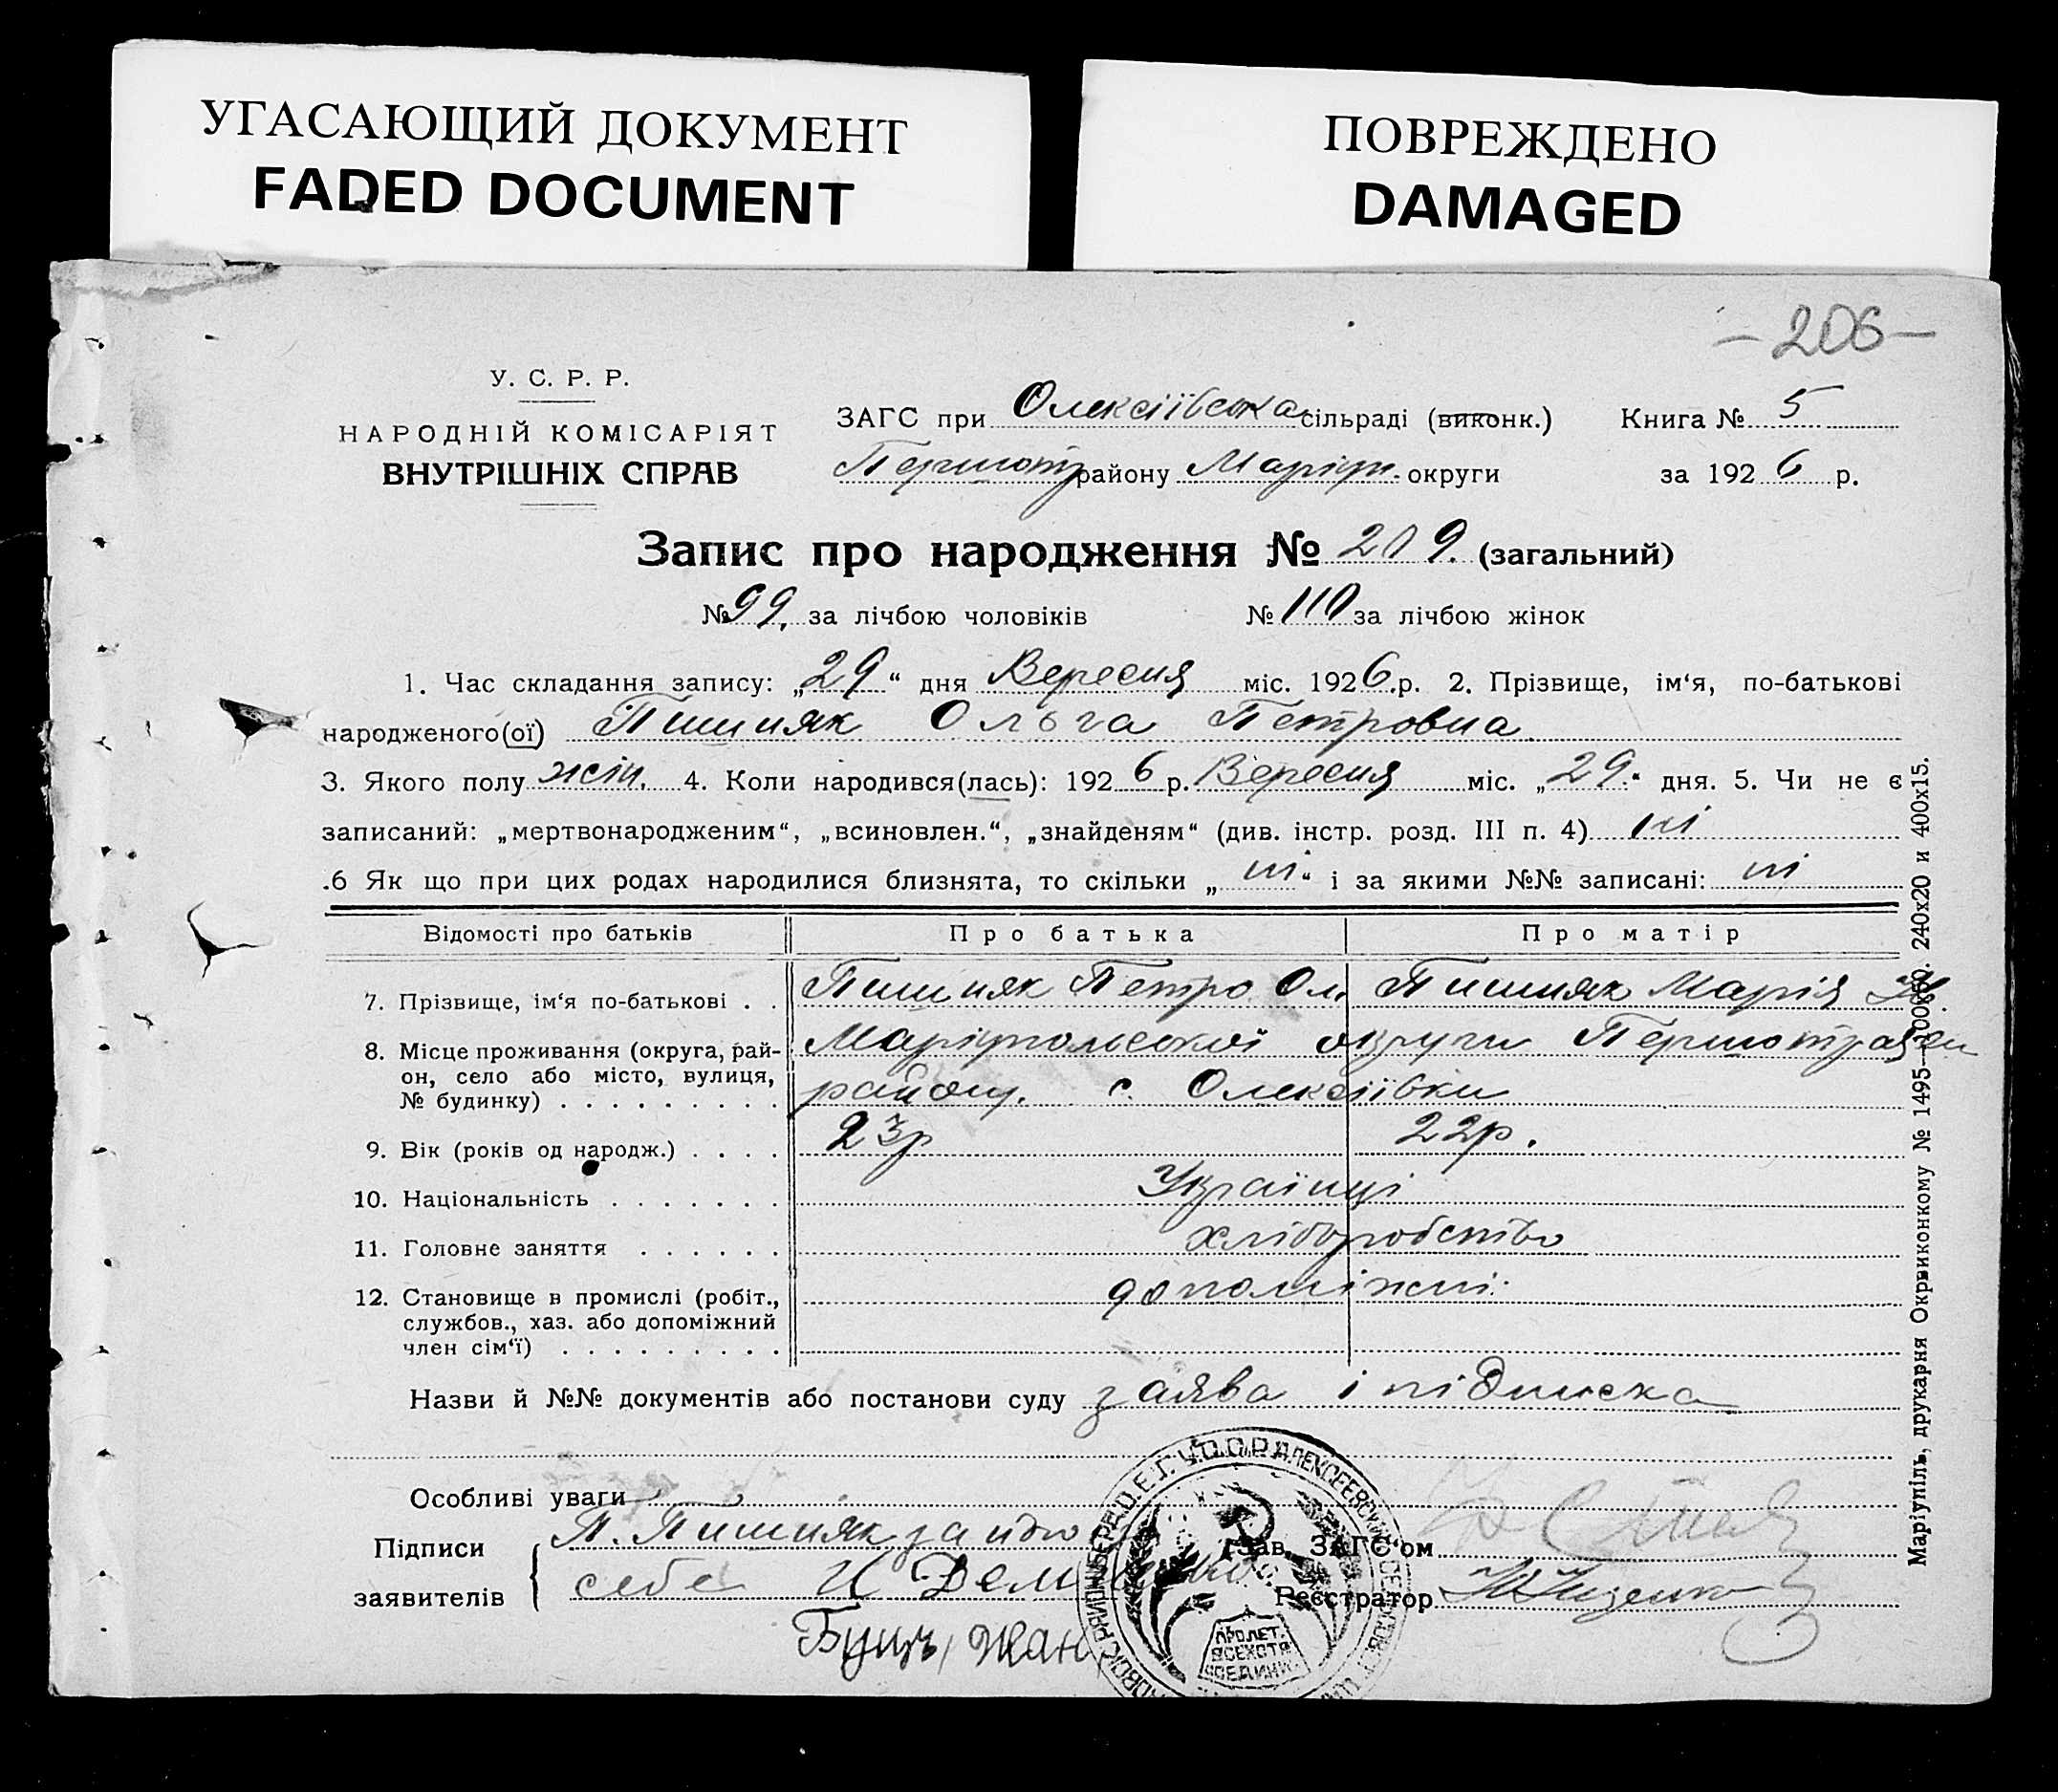 УГАСАЮЩИЙ ДОКУМЕНТ
FADED DOCUMENT
ПОВРЕЖДЕНО
DAMAGED
—206—
У. С. Р. Р.
НАРОДНІЙ КОМІСАРІЯТ
ВНУТРІШНІХ СПРАВ
ЗАГС при Олексіївська сільраді (виконк.) Книга № 5
Першотр району Маріуп. округи за 1926 р.
Запис про народження № 209. (загальний)
№ 99. за лічбою чоловіків № 110 за лічбою жінок
1. Час складання запису: „29“ дня Вересня міс. 1926.р. 2. Прізвище, ім‘я, по-батькові
народженого(ої) Пишняк Ольга Петровна
3. Якого полу жін. 4. Коли народився(лась): 1926 р. Вересня міс. „29.“ дня. 5. Чи не є
записаний: „мертвонародженим“, „всиновлен.“, „знайденям“ (див. інстр. розд. III п. 4) ні
.6 Як що при цих родах народилися близнята, то скільки „ні“ і за якими №№ записані: ні
Відомості про батьків Про батька Про матір
7. Прізвище, ім‘я по-батькові . . Пишняк Петро Ол. Пишняк Марія
8. Місце проживання (округа, рай- Маріупольської округи Першотравен
он, село або місто, вулиця, району. с. Олексіївки
№ будинку) . . . . . . . . .
9. Вік (років од народж.) . . . . 23р 22р.
10. Національність . . . . . . . Українці
11. Головне заняття . . . . . . хліборобство
12. Становище в промислі (робіт., допоміжні.
службов., хаз. або допоміжний
член сім‘ї) . . . . . . . . .
Назви й №№ документів або постанови суду заява і підписка
Особливі уваги
Підписи П. Пишняк за йдю Зав. ЗАГС‘ом
заявителів себе И Реєстратор
ПРОЛЕТ.
ВСЕХ СТР
СОЕДИН.
Маріупіль, друкарня Окрвиконкому № 1495—10000. 240х20 и 400х15.